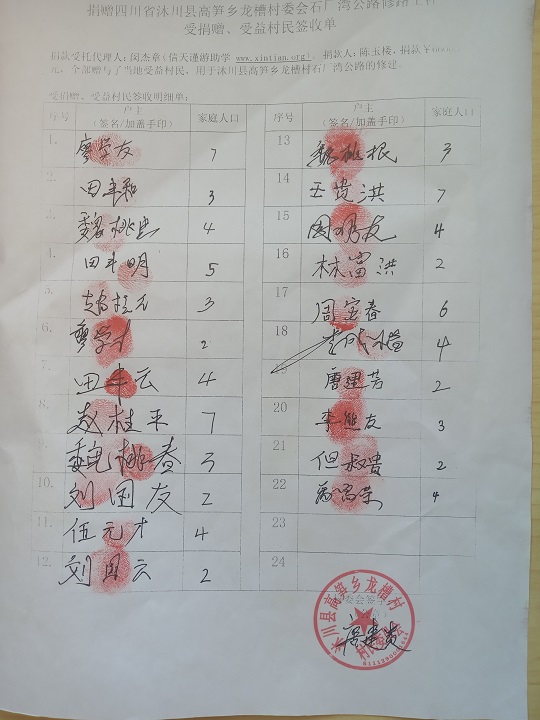 捐赠四川省沐川县高笋乡龙槽村委会石厂湾公路修路工程
受捐赠、受益村民签收单
捐款受托代理人：闵杰章（信天谨游助学 www.xintian.org）、捐款人：陈玉楼，捐款￥
元，全部赠与了当地受益村民，用于沐川县高笋乡龙槽村石厂湾公路的修建。
受捐赠、受益村民签收明细单：
序号 户主（签名/加盖手印） 家庭人口 序号 户主（签名/加盖手印） 家庭人口
1. 廖学友 7 13 魏桃根 3
2. 田丰和 3 14 王贵洪 7
3. 魏桃忠 4 15 周明友 4
4. 田丰明 5 16 林富洪 2
5. 赵桂元 3 17 周宝春 6
6. 廖学才 2 18 李成楷 4
7. 田丰云 4 19 唐建芳 2
8. 赵桂平 7 20 李继友 3
9. 魏桃春 3 21 但叔贵 2
10. 刘国友 2 22 4
11. 伍元才 4 23
12. 刘国云 2 24
沐川县高笋乡龙槽村
村民委员会